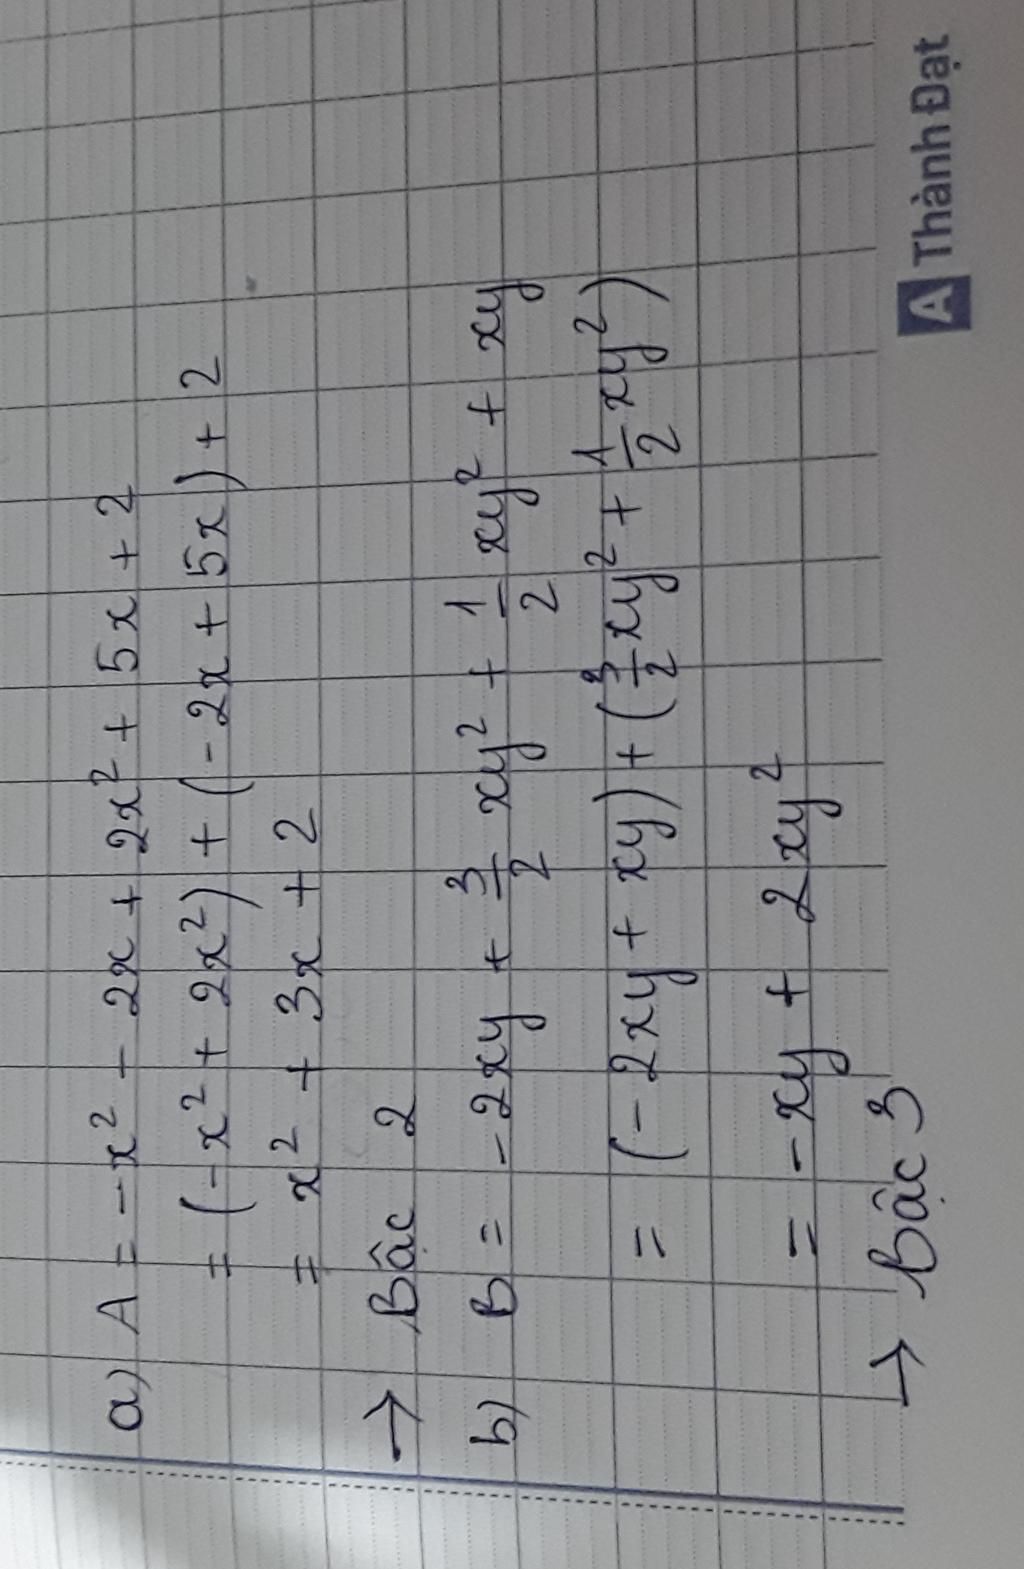 a) A = -x² - 2x + 2x² + 5x + 2
= (-x² + 2x²) + (-2x + 5x) + 2
= x² + 3x + 2
→ Bậc 2
b) B = -2xy + 3/2 xy² + 1/2 xy² + xy
= (-2xy + xy) + (3/2 xy² + 1/2 xy²)
= -xy + 2xy²
→ Bậc 3
A Thành Đạt